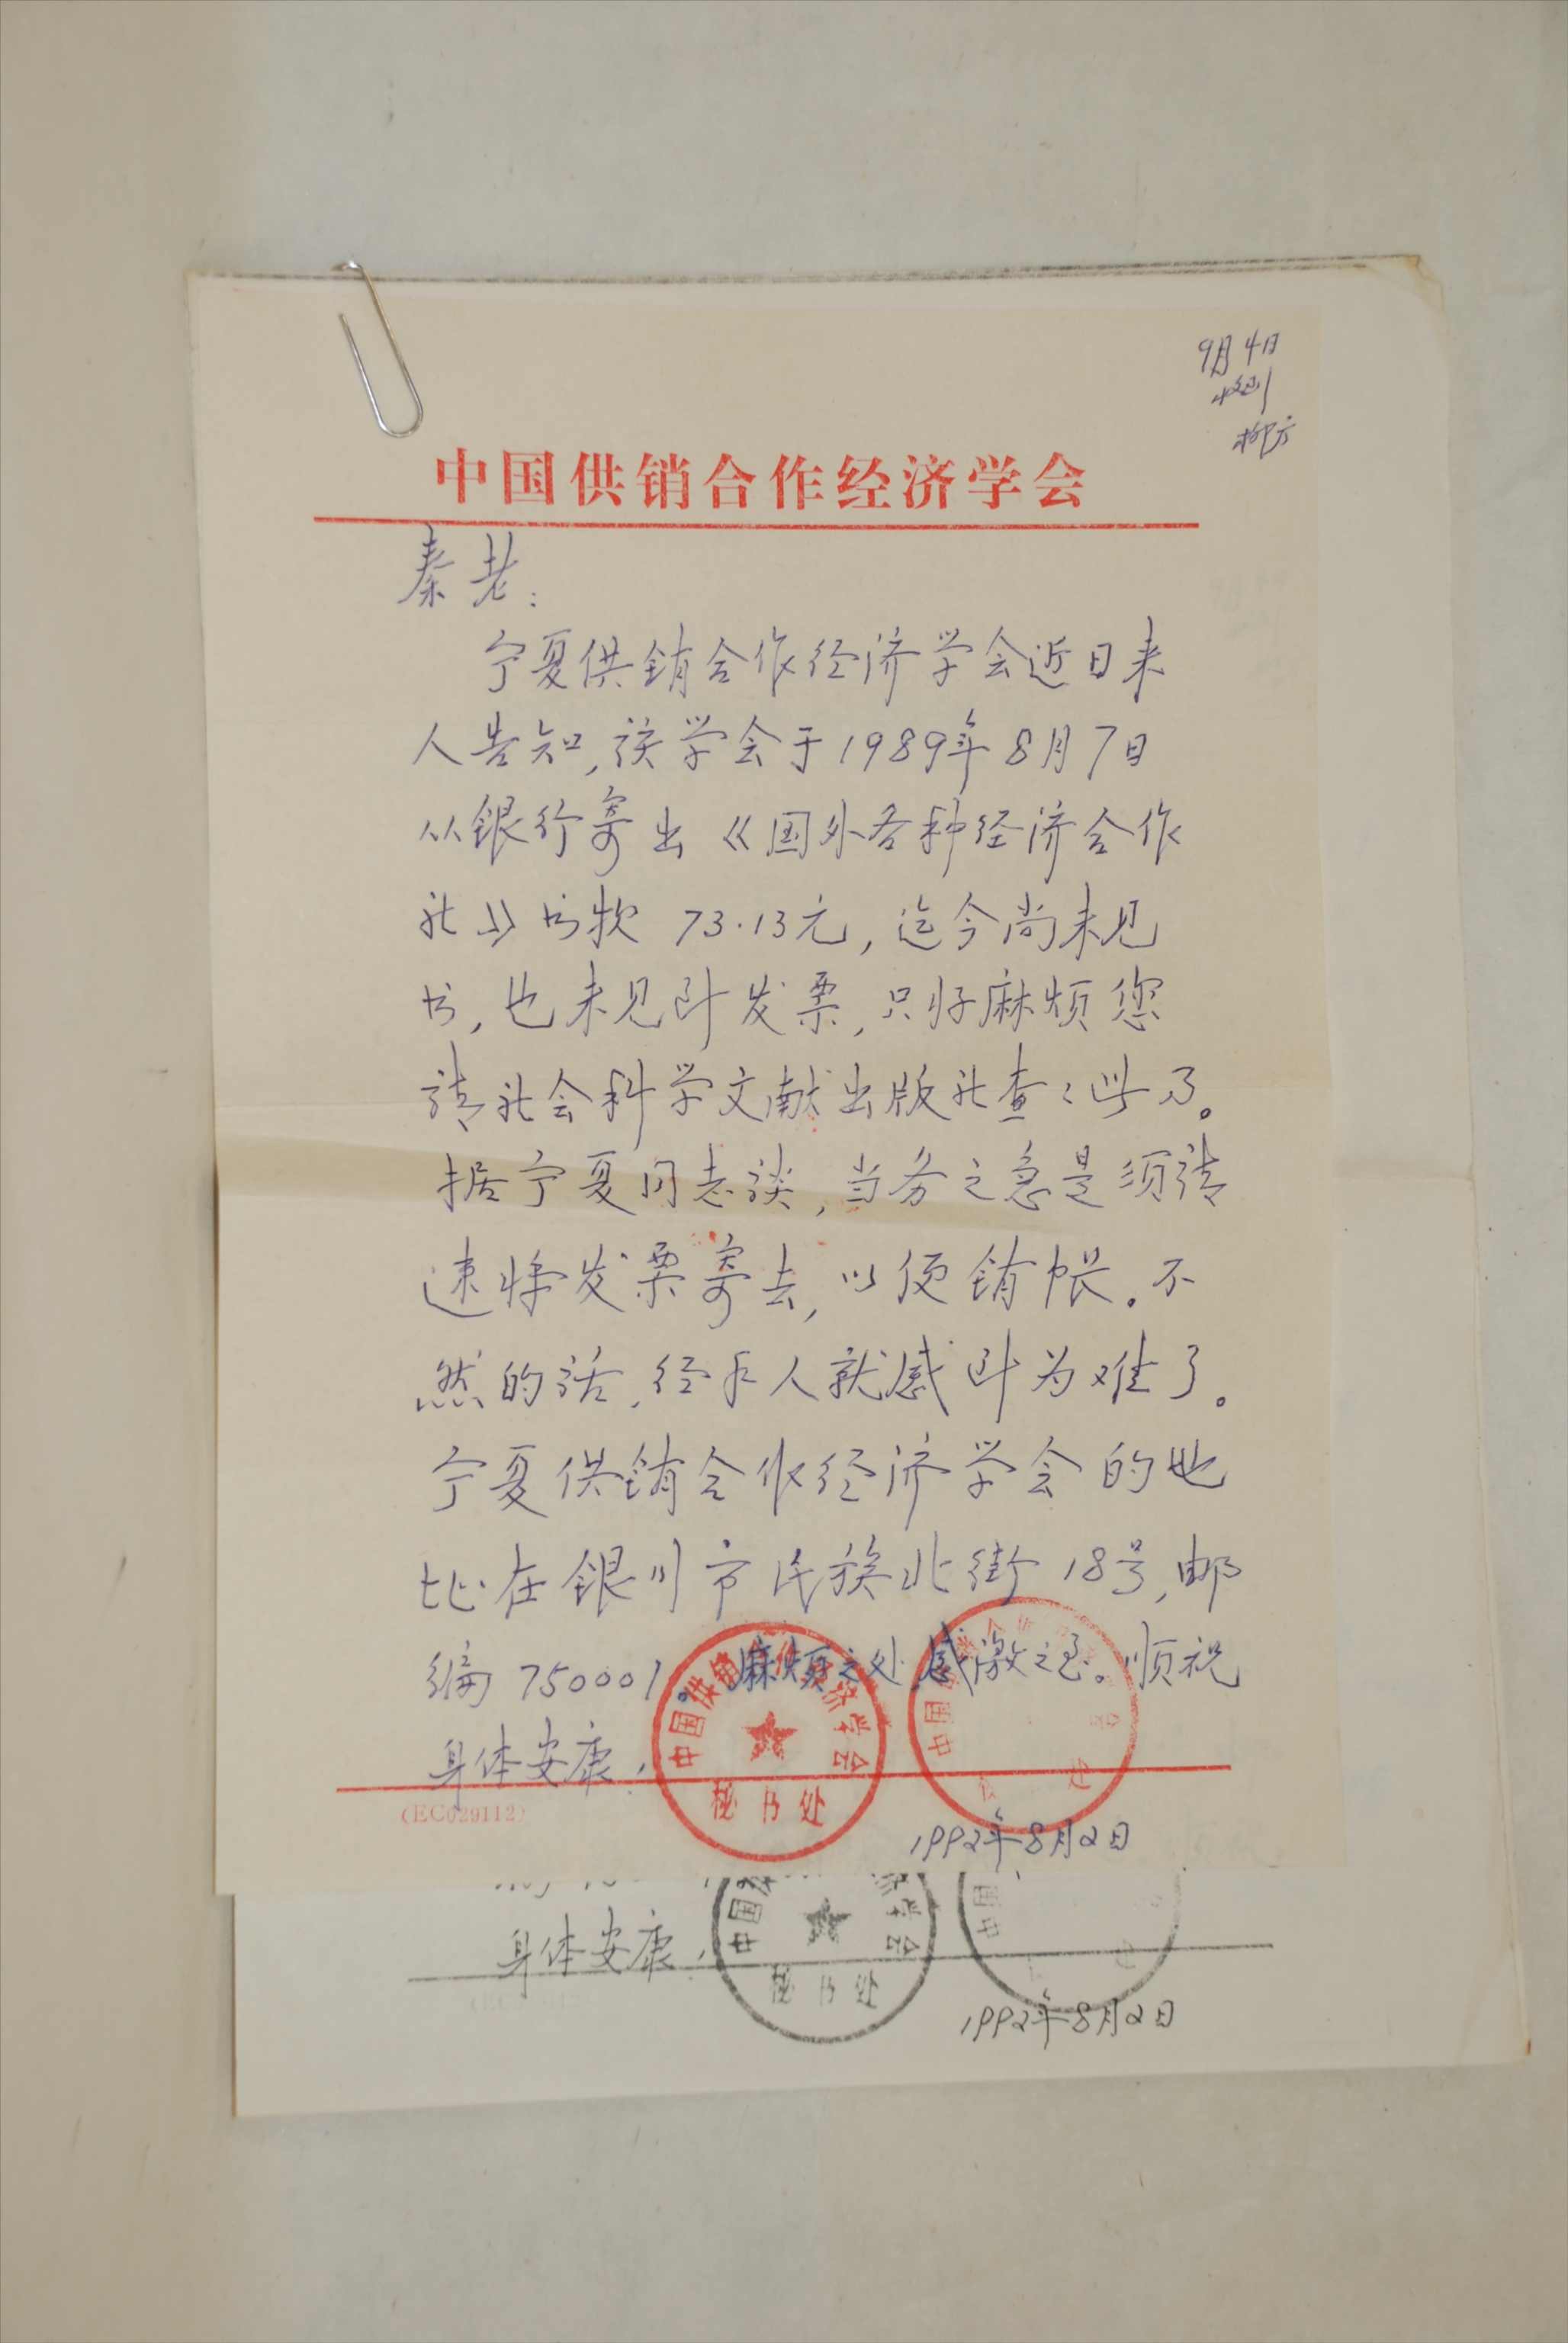 9月4日
收到
柳方
中国供销合作经济学会
秦老:
宁夏供销合作经济学会近日来
人告知,该学会于1989年8月7日
从银行寄出《国外各种经济合作
社》书款 73.13元,迄今尚未见
书,也未见到发票,只好麻烦您
请社会科学文献出版社查查此事。
据宁夏同志谈,当务之急是须请
速将发票寄去,以便销帐。不
然的话,经手人就感到为难了。
宁夏供销合作经济学会的地
址在银川市民族北街18号,邮
编750001。麻烦之处,感激之至。顺祝
身体安康!
中国供销合作经济学会
秘书处
(EC029112)
1992年8月2日
身体安康!
中国 济学会
秘书处
1992年8月2日